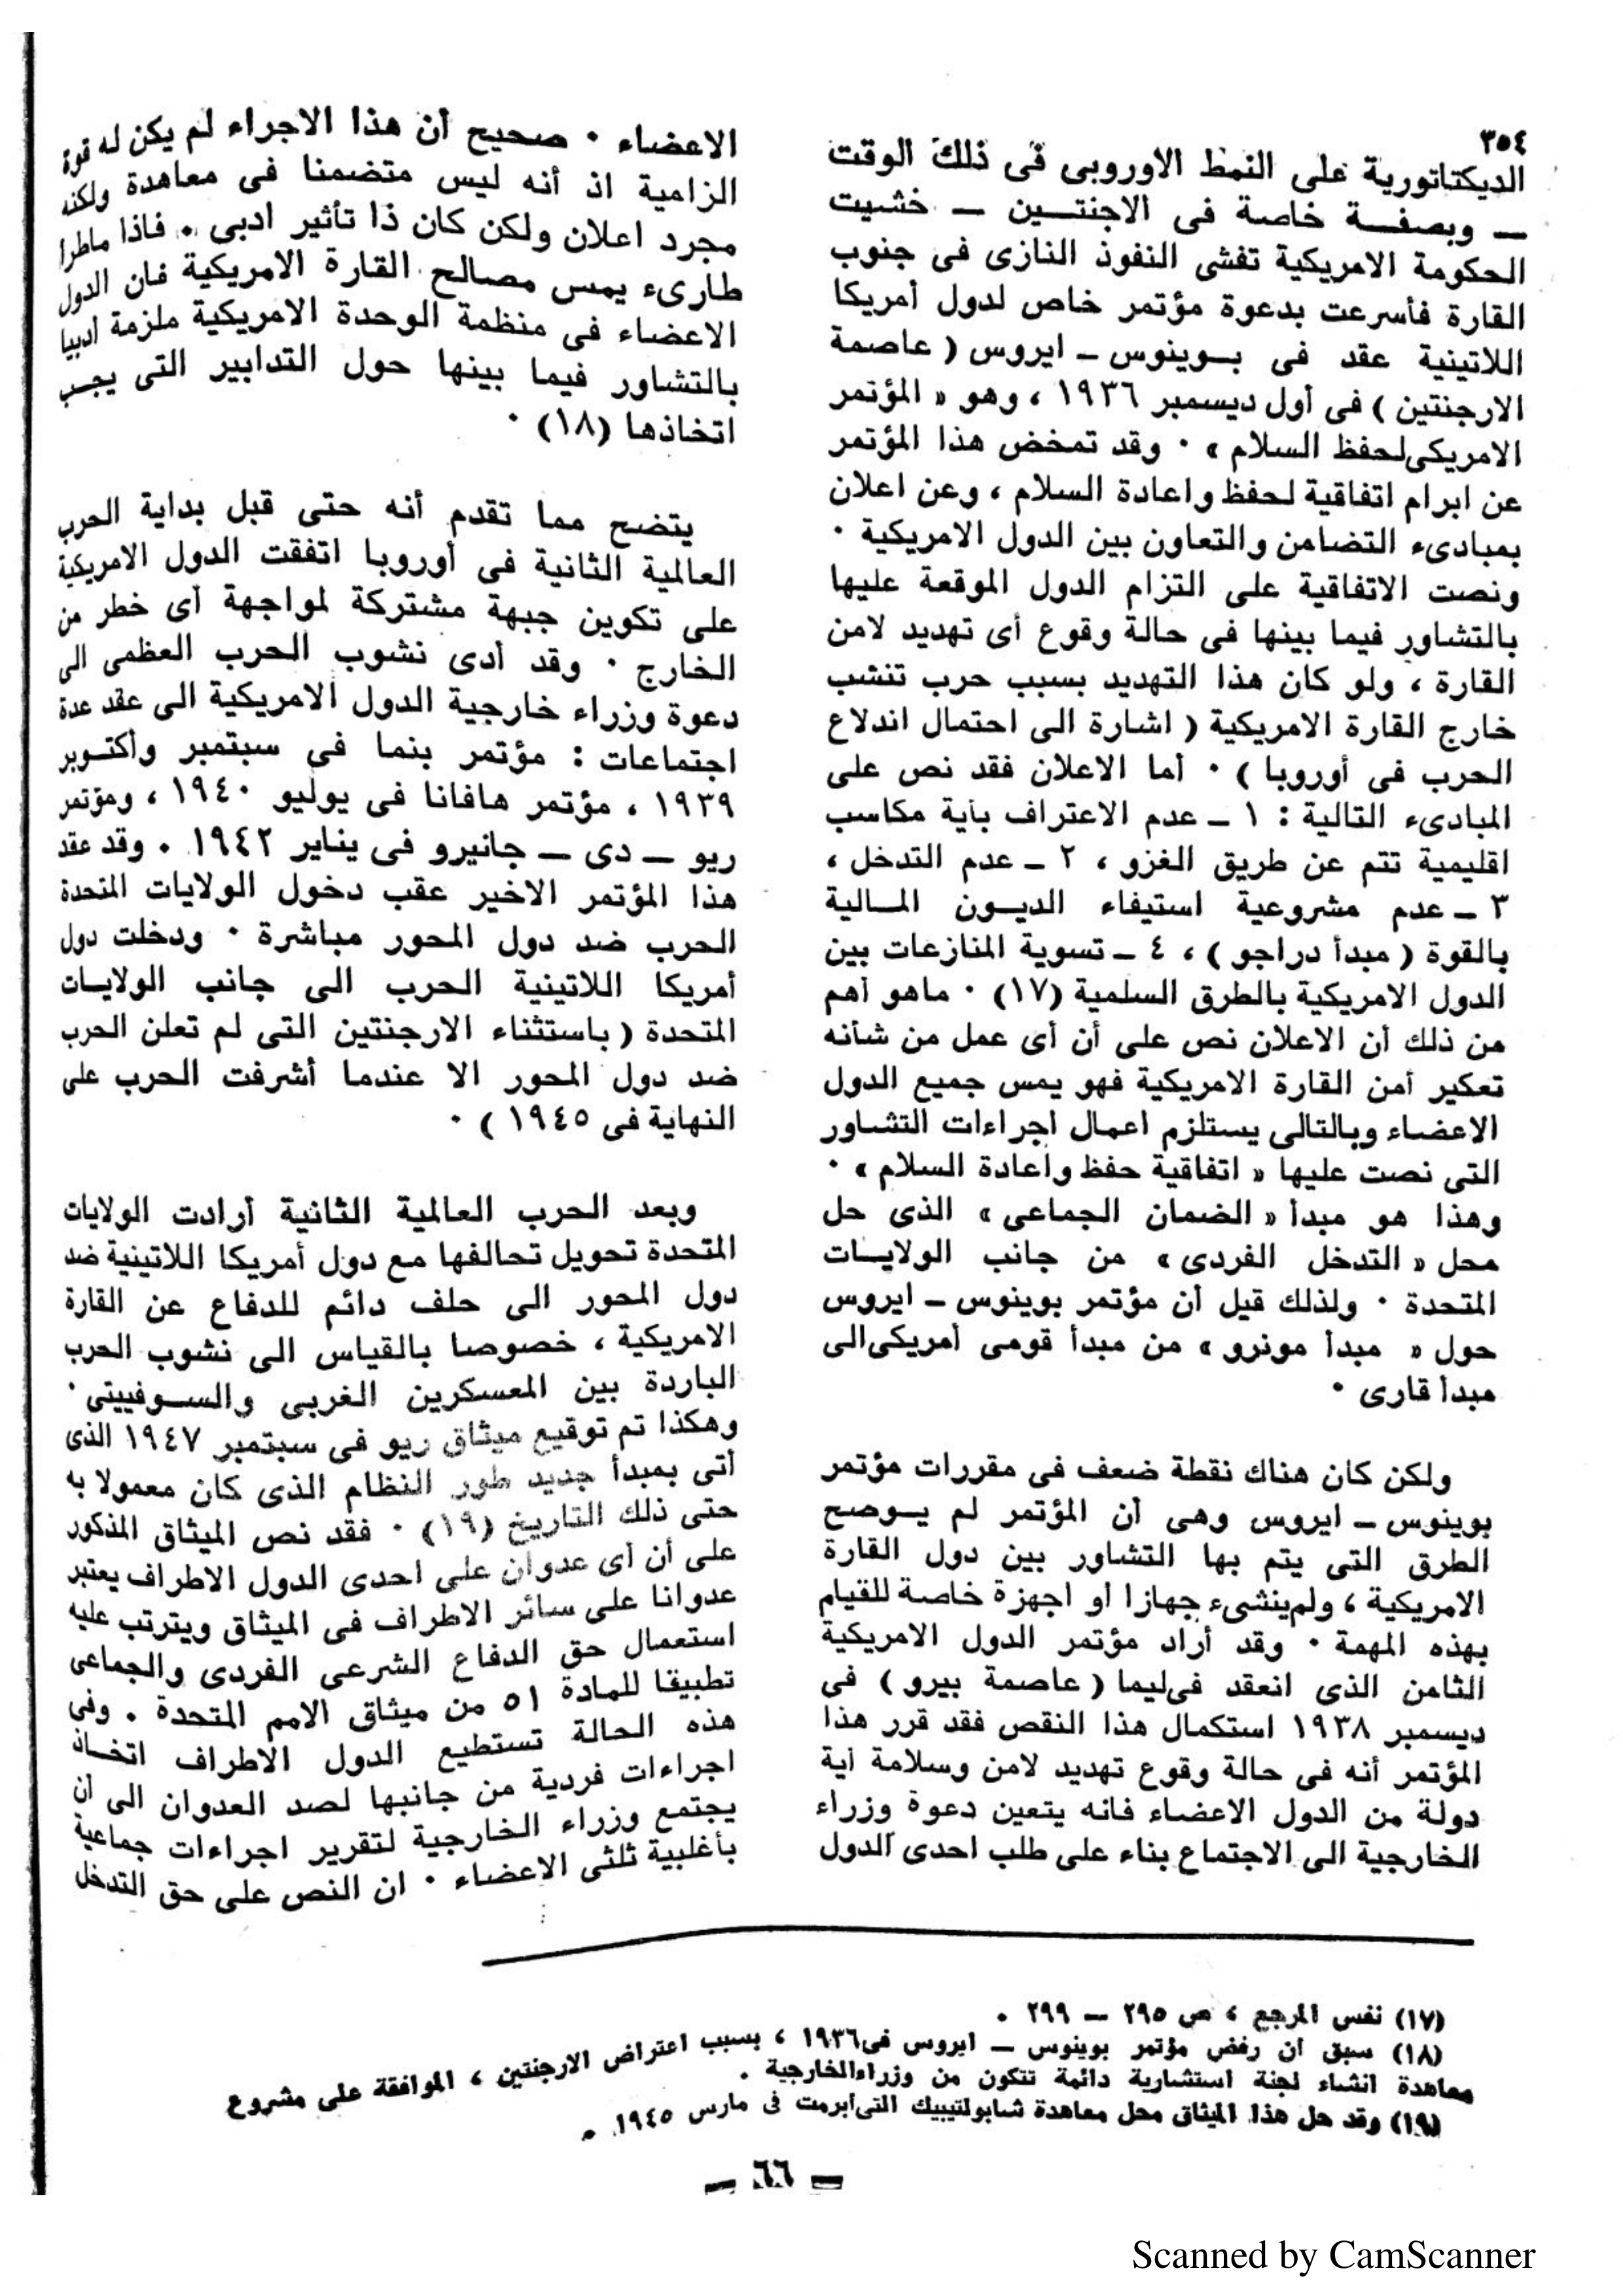 ٣٥٤
الديكتاتورية على النمط الاوروبى فى ذلك الوقت
ــ وبصفــة خاصة فى الاجنتــين ــ خشيت
الحكومة الامريكية تفشى النفوذ النازى فى جنوب
القارة فأسرعت بدعوة مؤتمر خاص لدول أمريكا
اللاتينية عقد فى بــوينوس ــ ايروس ( عاصمة
الارجنتين ) فى أول ديسمبر ١٩٣٦ ، وهو « المؤتمر
الامريكى لحفظ السلام » ٠ وقد تمخض هذا المؤتمر
عن ابرام اتفاقية لحفظ واعادة السلام ، وعن اعلان
بمبادىء التضامن والتعاون بين الدول الامريكية ٠
ونصت الاتفاقية على التزام الدول الموقعة عليها
بالتشاور فيما بينها فى حالة وقوع أى تهديد لامن
القارة ، ولو كان هذا التهديد بسبب حرب تنشب
خارج القارة الامريكية ( اشارة الى احتمال اندلاع
الحرب فى أوروبا ) ٠ أما الاعلان فقد نص على
المبادىء التالية : ١ ــ عدم الاعتراف بأية مكاسب
اقليمية تتم عن طريق الغزو ، ٢ ــ عدم التدخل ،
٣ ــ عدم مشروعية استيفاء الديــون المــالية
بالقوة ( مبدأ دراجو ) ، ٤ ــ تسوية المنازعات بين
الدول الامريكية بالطرق السلمية (١٧) ٠ ماهو أهم
من ذلك أن الاعلان نص على أن أى عمل من شأنه
تعكير أمن القارة الامريكية فهو يمس جميع الدول
الاعضاء وبالتالى يستلزم اعمال اجراءات التشــاور
التى نصت عليها « اتفاقية حفظ واعادة السلام » ٠
وهذا هو مبدأ « الضمان الجماعى » الذى حل
محل « التدخل الفردى » من جانب الولايــات
المتحدة ٠ ولذلك قيل أن مؤتمر بوينوس ــ ايروس
حول « مبدأ مونرو » من مبدأ قومى أمريكى الى
مبدأ قارى ٠
ولكن كان هناك نقطة ضعف فى مقررات مؤتمر
بوينوس ــ ايروس وهى أن المؤتمر لم يــوضح
الطرق التى يتم بها التشاور بين دول القارة
الامريكية ، ولم ينشىء جهازا او اجهزة خاصة للقيام
بهذه المهمة ٠ وقد أراد مؤتمر الدول الامريكية
الثامن الذى انعقد فى ليما ( عاصمة بيرو ) فى
ديسمبر ١٩٣٨ استكمال هذا النقص فقد قرر هذا
المؤتمر أنه فى حالة وقوع تهديد لامن وسلامة أية
دولة من الدول الاعضاء فانه يتعين دعوة وزراء
الخارجية الى الاجتماع بناء على طلب احدى الدول
الاعضاء ٠ صحيح أن هذا الاجراء لم يكن له قوة
الزامية اذ أنه ليس متضمنا فى معاهدة ولكنه
مجرد اعلان ولكن كان ذا تأثير ادبى ٠ فاذا ماطرأ
طارىء يمس مصالح القارة الامريكية فان الدول
الاعضاء فى منظمة الوحدة الامريكية ملزمة أدبيا
بالتشاور فيما بينها حول التدابير التى يجــب
اتخاذها (١٨) ٠
يتضح مما تقدم أنه حتى قبل بداية الحرب
العالمية الثانية فى أوروبا اتفقت الدول الامريكية
على تكوين جبهة مشتركة لمواجهة أى خطر من
الخارج ٠ وقد أدى نشوب الحرب العظمى الى
دعوة وزراء خارجية الدول الامريكية الى عقد عدة
اجتماعات : مؤتمر بنما فى سبتمبر وأكتــوبر
١٩٣٩ ، مؤتمر هافانا فى يوليو ١٩٤٠ ، ومؤتمر
ريو ــ دى ــ جانيرو فى يناير ١٩٤٢ ٠ وقد عقد
هذا المؤتمر الاخير عقب دخول الولايات المتحدة
الحرب ضد دول المحور مباشرة ٠ ودخلت دول
أمريكا اللاتينية الحرب الى جانب الولايــات
المتحدة ( باستثناء الارجنتين التى لم تعلن الحرب
ضد دول المحور الا عندما أشرفت الحرب على
النهاية فى ١٩٤٥ ) ٠
وبعد الحرب العالمية الثانية أرادت الولايات
المتحدة تحويل تحالفها مع دول أمريكا اللاتينية ضد
دول المحور الى حلف دائم للدفاع عن القارة
الامريكية ، خصوصا بالقياس الى نشوب الحرب
الباردة بين المعسكرين الغربى والســوفييتى ٠
وهكذا تم توقيع ميثاق ريو فى سبتمبر ١٩٤٧ الذى
أتى بمبدأ جديد طور النظام الذى كان معمولا به
حتى ذلك التاريخ (١٩) ٠ فقد نص الميثاق المذكور
على أن أى عدوان على احدى الدول الاطراف يعتبر
عدوانا على سائر الاطراف فى الميثاق ويترتب عليه
استعمال حق الدفاع الشرعى الفردى والجماعى
تطبيقا للمادة ٥١ من ميثاق الامم المتحدة ٠ وفى
هذه الحالة تستطيع الدول الاطراف اتخــاذ
اجراءات فردية من جانبها لصد العدوان الى أن
يجتمع وزراء الخارجية لتقرير اجراءات جماعية
بأغلبية ثلثى الاعضاء ٠ ان النص على حق التدخل
(١٧) نفس المرجع ، ص ٢٩٥ ــ ٢٩٩ ٠
(١٨) سبق أن رفض مؤتمر بوينوس ــ ايروس فى ١٩٣٦ ، بسبب اعتراض الارجنتين ، الموافقة على مشروع
معاهدة انشاء لجنة استشارية دائمة تتكون من وزراء الخارجية ٠
(١٩) وقد حل هذا الميثاق محل معاهدة شابولتيبيك التى أبرمت فى مارس ١٩٤٥ ٠
ــ ٦٦ ــ
Scanned by CamScanner